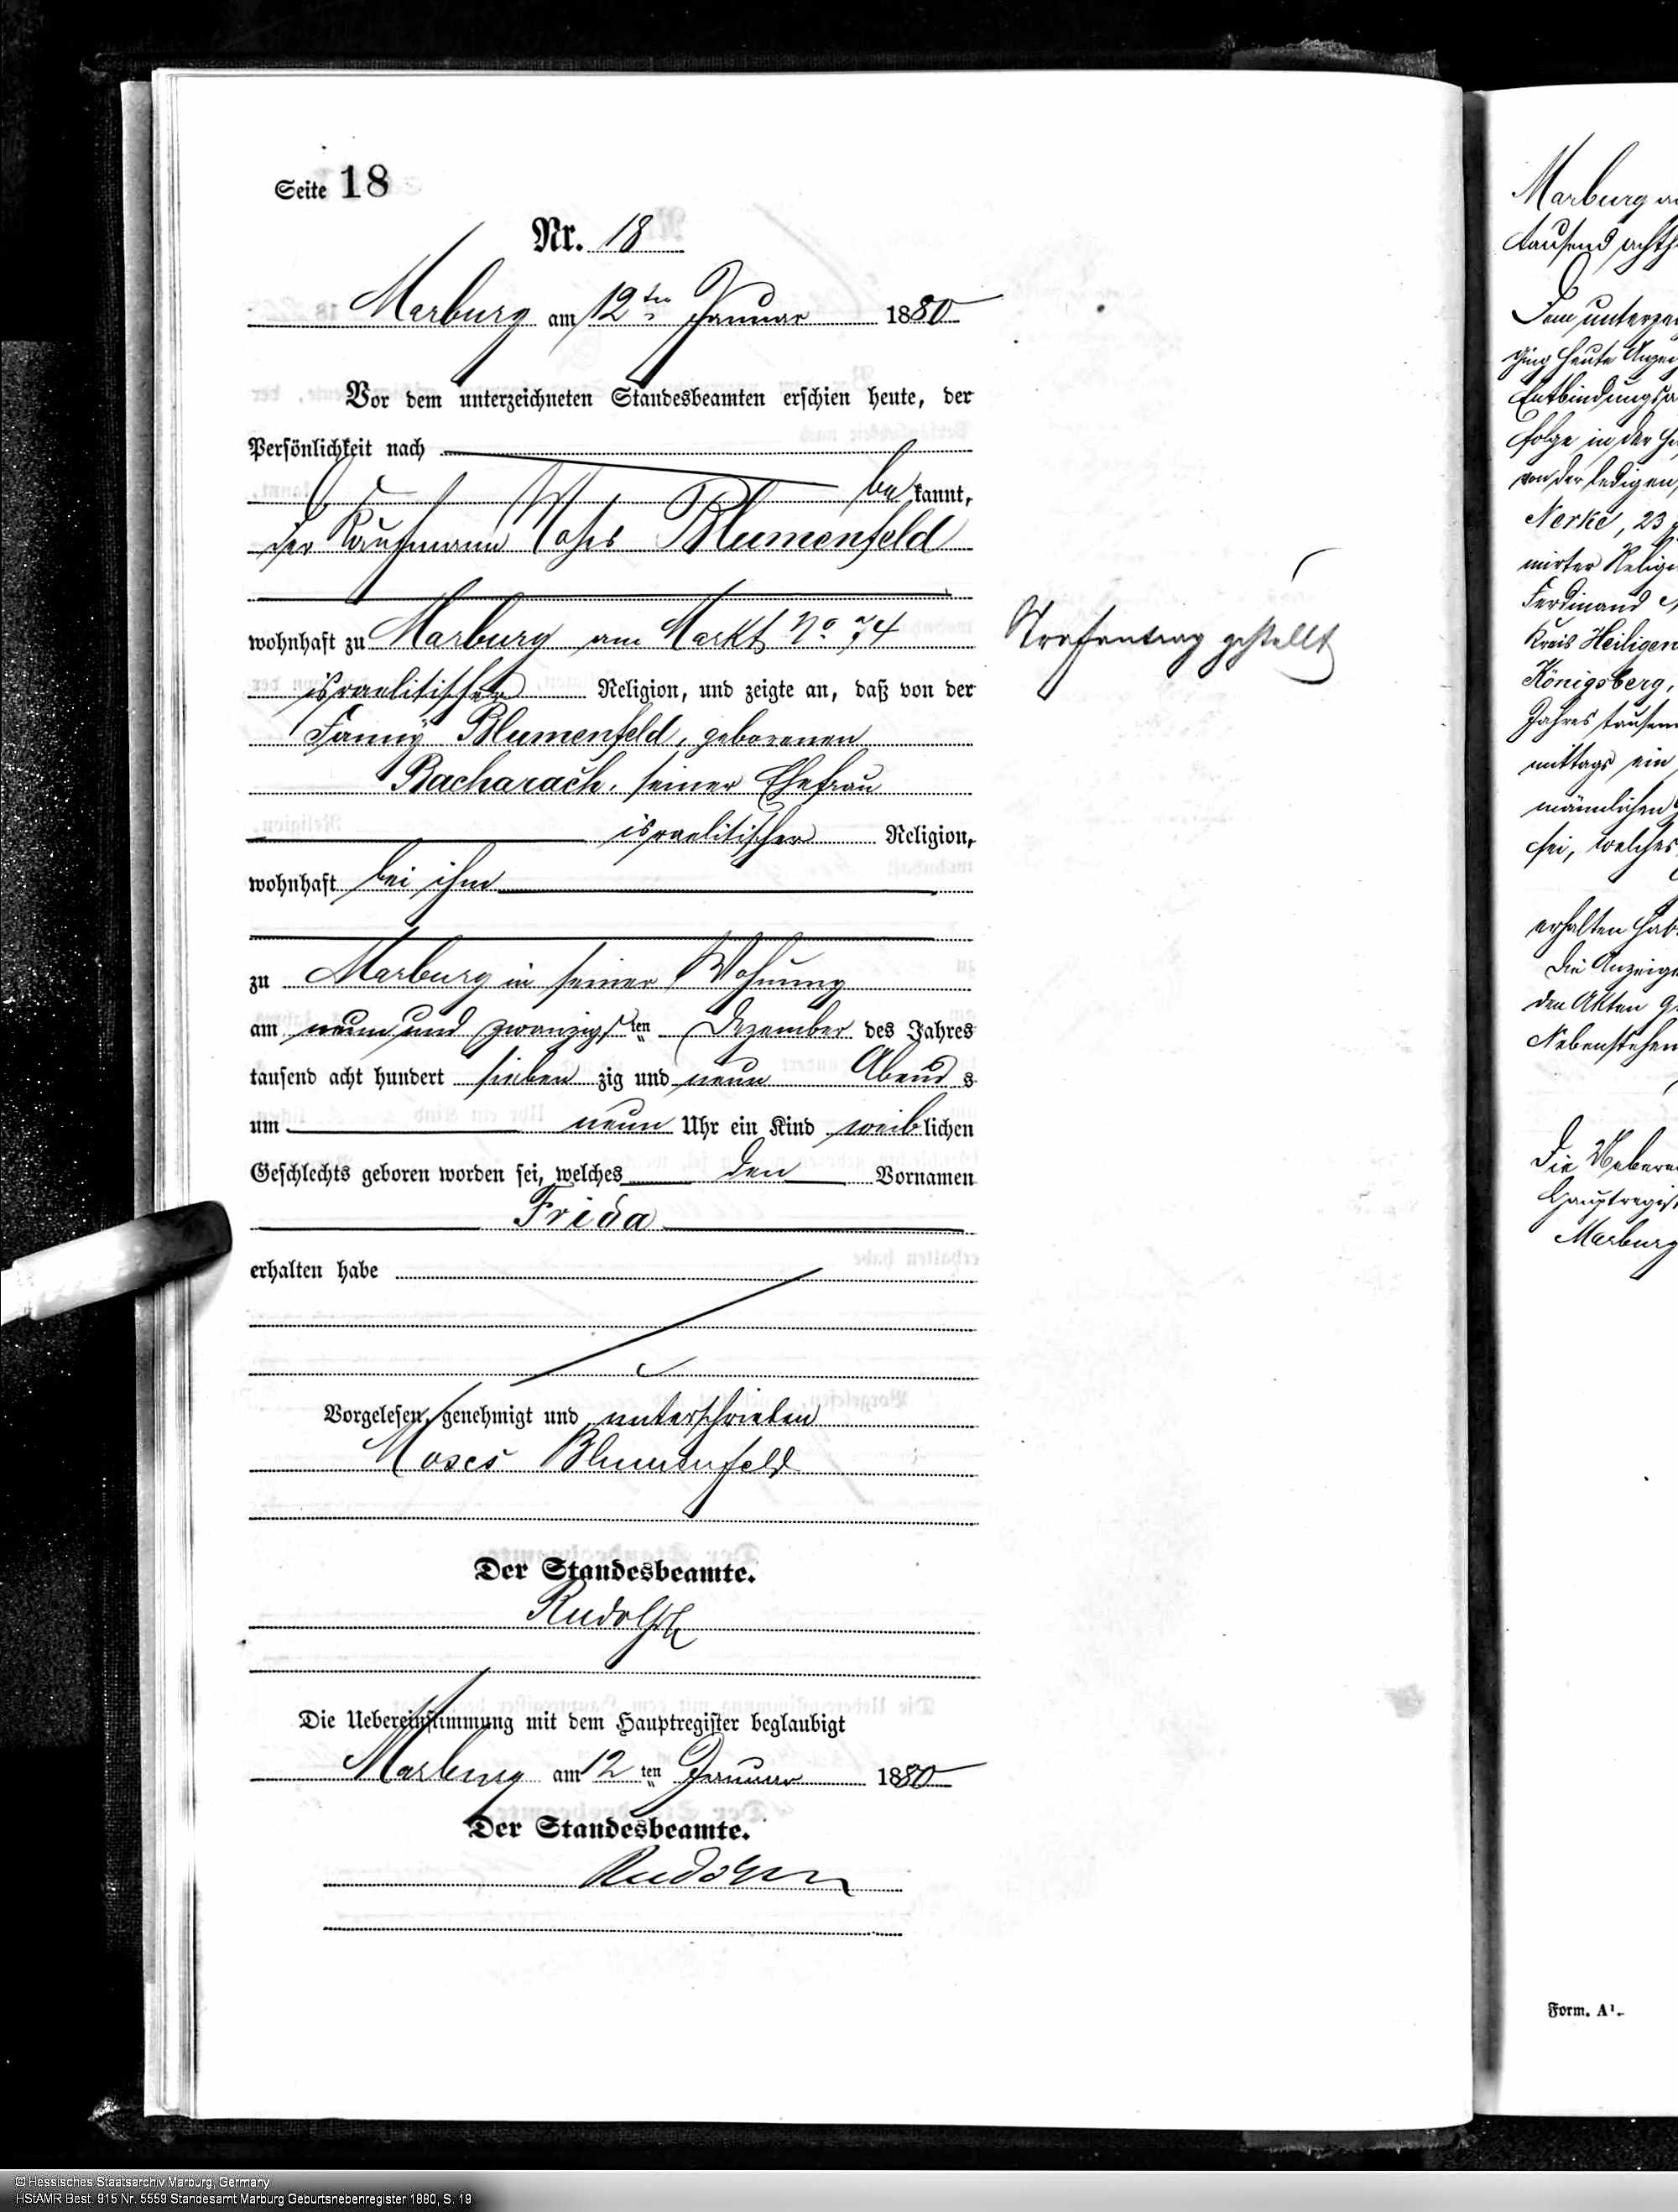 Seite 18
Nr. 18
Marburg am 12ten Januar 1880
Vor dem unterzeichneten Standesbeamten erschien heute, der
Persönlichkeit nach
be kannt,
der Kaufmann Moses Blumenfeld
wohnhaft zu Marburg am Markt No 74
israelitischer Religion, und zeigte an, daß von der
Fanny Blumenfeld, geborenen
Bacharach, seiner Ehefrau
israelitischer Religion,
wohnhaft bei ihm
zu Marburg in seiner Wohnung
am neun und zwanzigsten Dezember des Jahres
tausend acht hundert sieben zig und neun Abend s
um neun Uhr ein Kind weiblichen
Geschlechts geboren worden sei, welches den Vornamen
Frida
erhalten habe
Vorgelesen, genehmigt und unterschrieben
Moses Blumenfeld
Der Standesbeamte.
Rudolph
Die Uebereinstimmung mit dem Hauptregister beglaubigt
Marburg am 12 ten Januar 1880
Der Standesbeamte.
Rudolph
Strafantrag gestellt
Marburg
tausend
Dem
ging heute
Entbindungs
folge in der
von der ledigen
Nerke, 23
mirter
Ferdinand
Kreis Heiligen
Königsberg,
Jahres
mittags ein
männlichen
sei, welches
erhalten
Die Anzeige
den Akten
Nebenstehen
Die
Hauptregis
Marburg
Form. A¹.
© Hessisches Staatsarchiv Marburg, Germany
HStAMR Best. 915 Nr. 5559 Standesamt Marburg Geburtsnebenregister 1880, S. 19